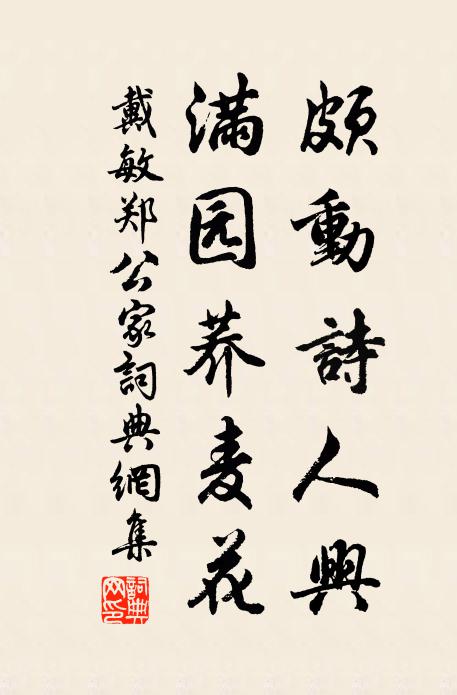 頗動詩人興
满园荞麦花
戴敏郑公家詞典網集
詞典网印